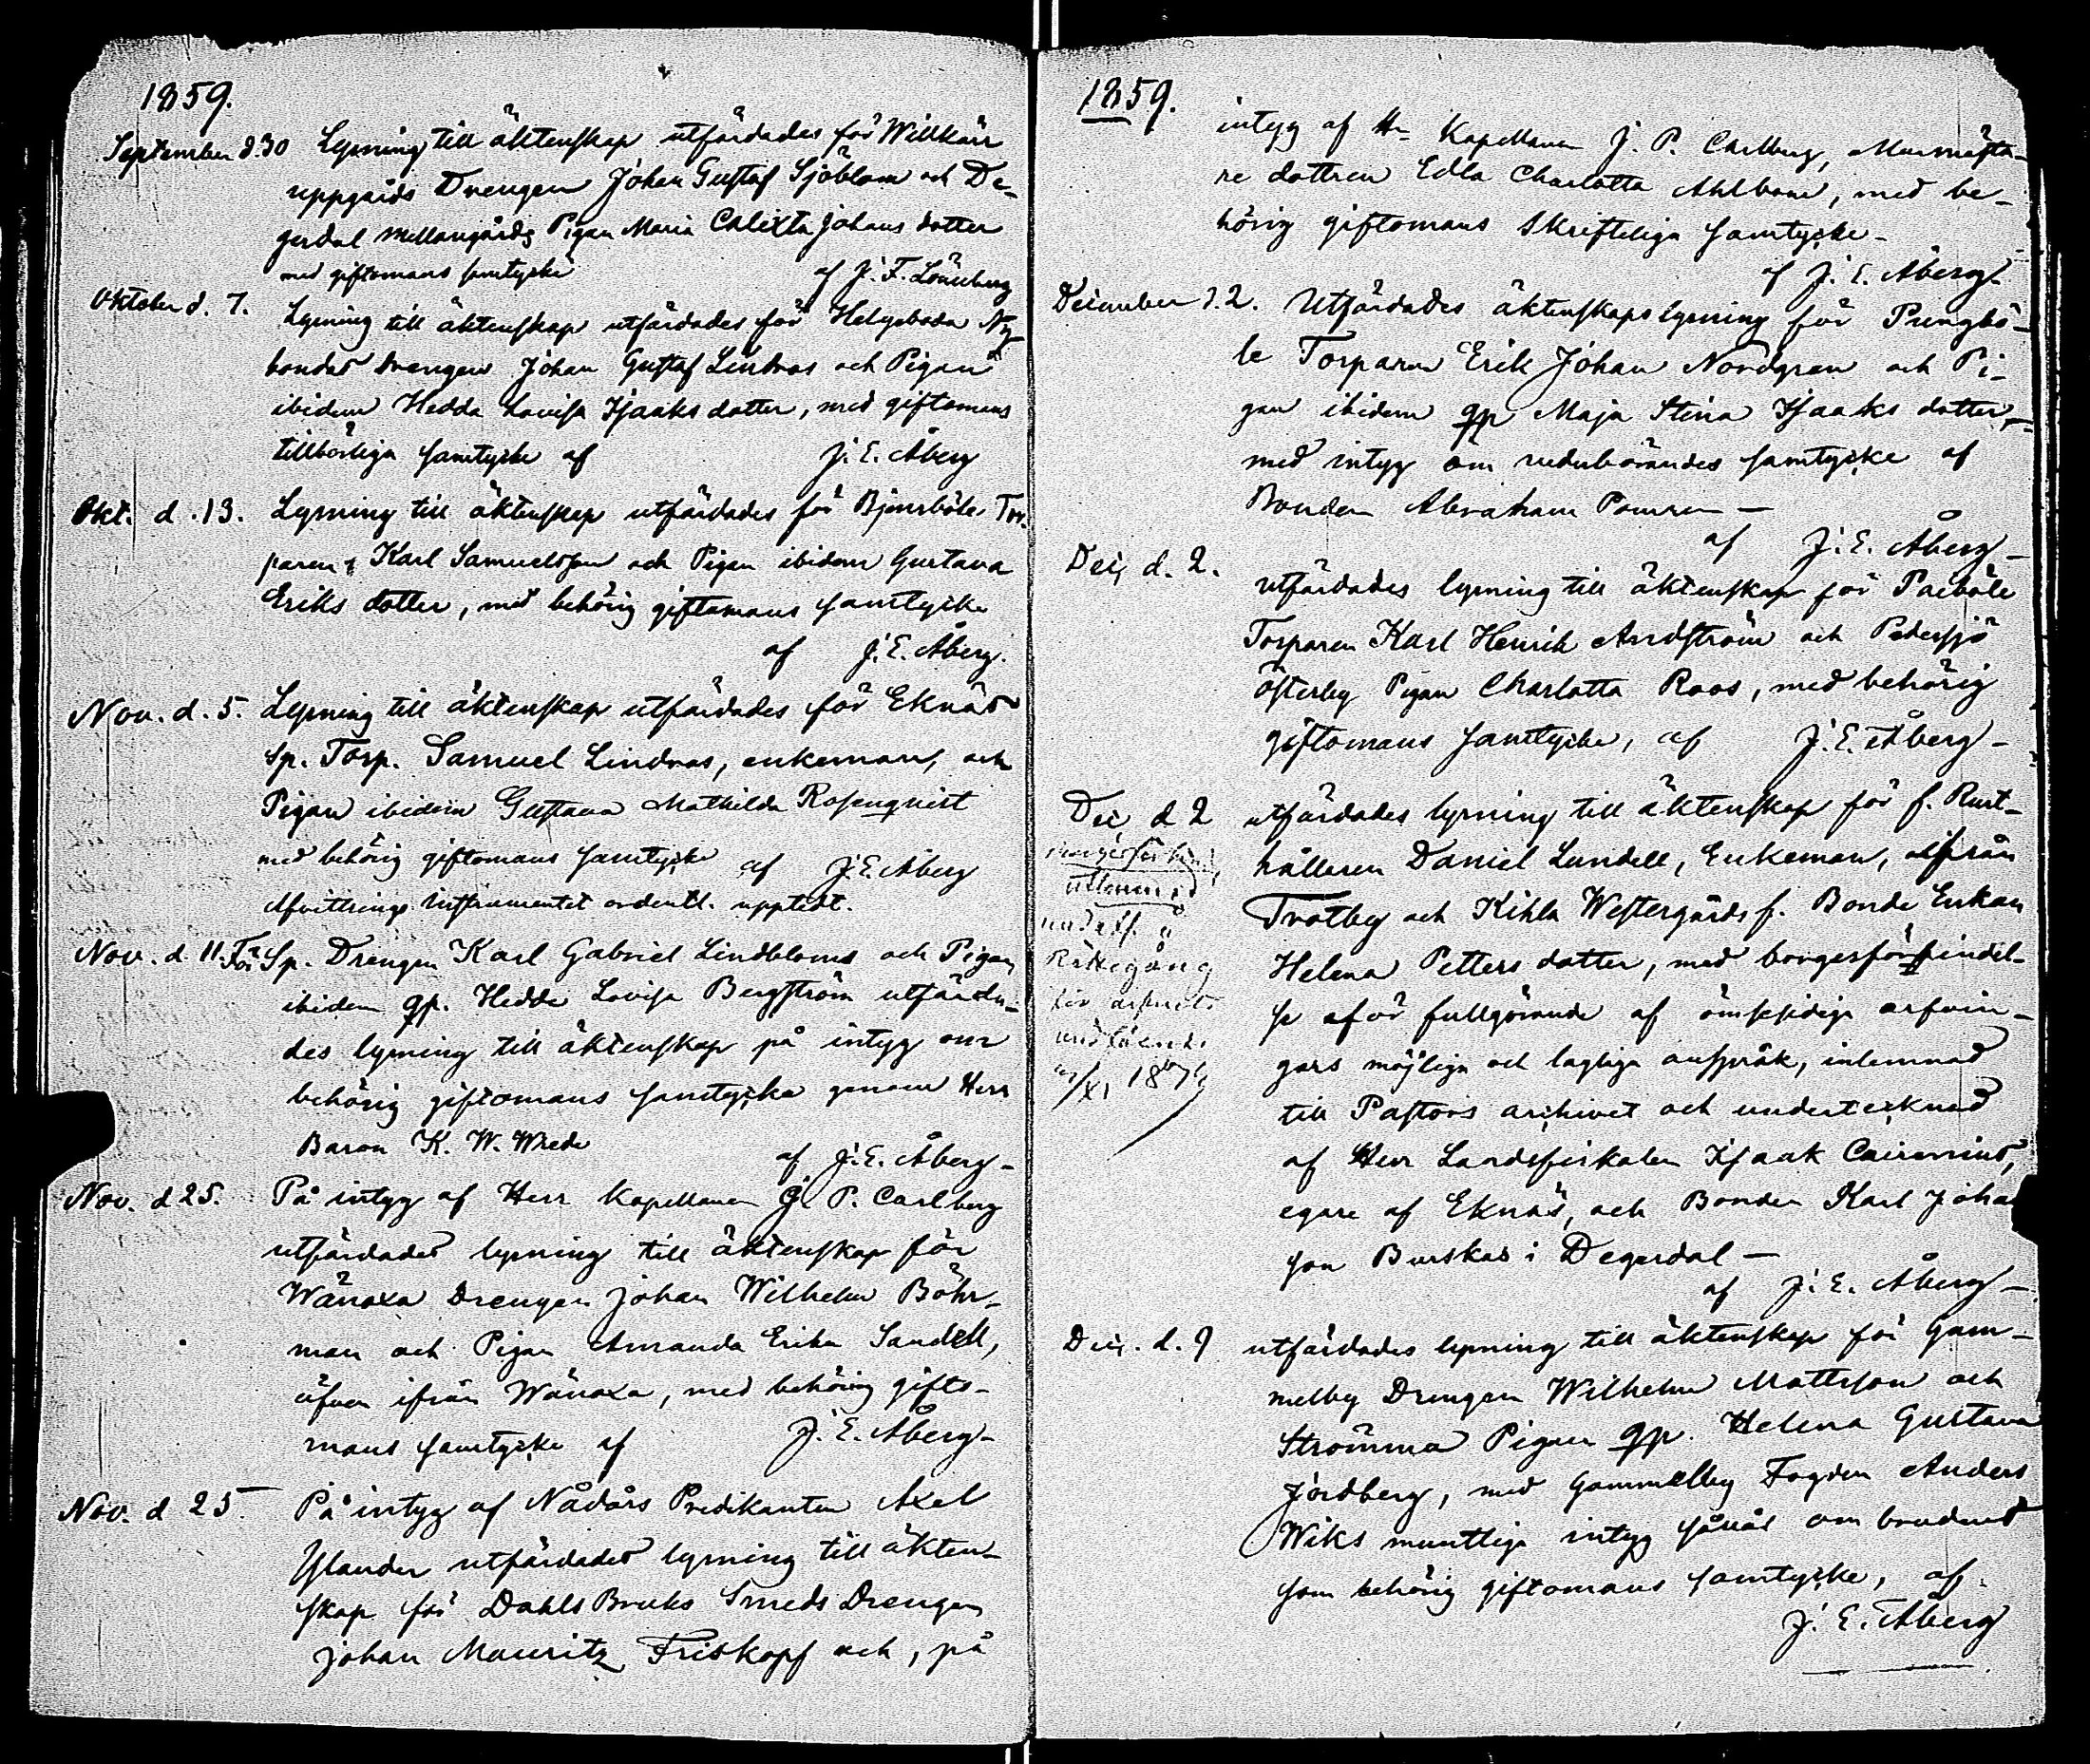 1859.
September d. 30 Lysning till äktenskap utfärdades för Willkärr
uppgårds Drengen Johan Gustaf Sjöblom och De-
gerdal mellangårds Pigan Maria Calixta Johans dotter
med giftomans samtycke af J. F. Lönnberg
Oktober d. 7. Lysning till äktenskap utfärdades för Helgeboda Ny
bondas drengen Johan Gustaf Lindroos och Pigan
ibidem Hedda Lovisa Isaaks dotter, med giftomans
tillbörliga samtycke af J. E. Åberg
Okt. d. 13. Lysning till äktenskap utfärdades för Björsböle Tor-
paren Karl Samuelsson och Pigan ibidem Gustava
Eriks dotter, med behörig giftomans samtycke
af J. E. Åberg.
Nov. d. 5. Lysning till äktenskap utfärdades för Eknäs
sp. Torp. Samuel Lindroos, enkeman, och
Pigan ibidem Gustava Mathilda Rosenqvist
med behörig giftomans samtycke af J. E. Åberg
Afvittrings instrumentet ordentl. upptedt.
Nov. d. 11. För Sp. Drengen Karl Gabriel Lindblom och Pigan
ibidem qp. Hedda Lovisa Bergström utfärda-
des lysning till äktenskap på intyg om
behörig giftomans samtycke genom Herr
Baron K. W. Wrede af J. E. Åberg-
Nov. d 25. På intyg af Herr Kapellanen J. P. Carlberg
utfärdades lysning till äktenskap för
Wänoxa Drengen Johan Wilhelm Böhr-
man och Pigan Amanda Erika Sandell,
äfven ifrån Wänoxa, med behörig gifto-
mans samtycke af J. E. Åberg-
Nov. d 25 På intyg af Nådårs Predikanten Axel
Ylander utfärdades lysning till äkten-
skap för Dahls Bruks Smeds Drengen
Johan Mauritz Friskopf och, på
1859.
intyg af Hr Kapellanen J. P. Carlberg, Murmästa-
re dottren Edla Charlotta Ahlbom, med be-
hörig giftomans skriftliga samtycke-
af J. E. Åberg-
December d. 2. Utfärdades äktenskapslysning för Pungbö-
le Torparen Erik Johan Nordgren och Pi-
gan ibidem qp Maja Stina Isaaks dotter,
med intyg om vederbörandes samtycke af
Bonden Abraham
af J. E. Åberg-
Dec. d. 2. utfärdades lysning till äktenskap för Paiböle
Torparen Karl Henrik Arndström och Pedersjö
Österby Pigan Charlotta Roos, med behörig
giftomans samtycke, af J. E. Åberg-
Dec. d 2 utfärdades lysning till äktenskap för f. Rust-
hållaren Daniel Lundell, Enkeman, ifrån
Trotby och Kihla Westergårds f. Bonde Enkan
Helena Petters dotter, med borgesförbindel-
se aför fullgörande af ömsesidige arfvin-
gars möjliga och lagliga anspråk, inlemnad
till Pastors archivet och undertecknad
af Herr Landsfiskalen Isaak Cairenius,
egare af Eknäs, och Bonden Karl Johan
son Burskas i Degerdal-
af J. E. Åberg-
utlemnad
Rättegång
Dec. d. 9 utfärdades lysning till äktenskap för Gam-
melby Drengen Wilhelm Mattsson och
Strömma Pigan qp. Helena Gustava
Jordberg, med Gammelby Fogden Anders
Wiks muntliga intyg såväl om brudens
som behörig giftomans samtycke, af
J. E. Åberg